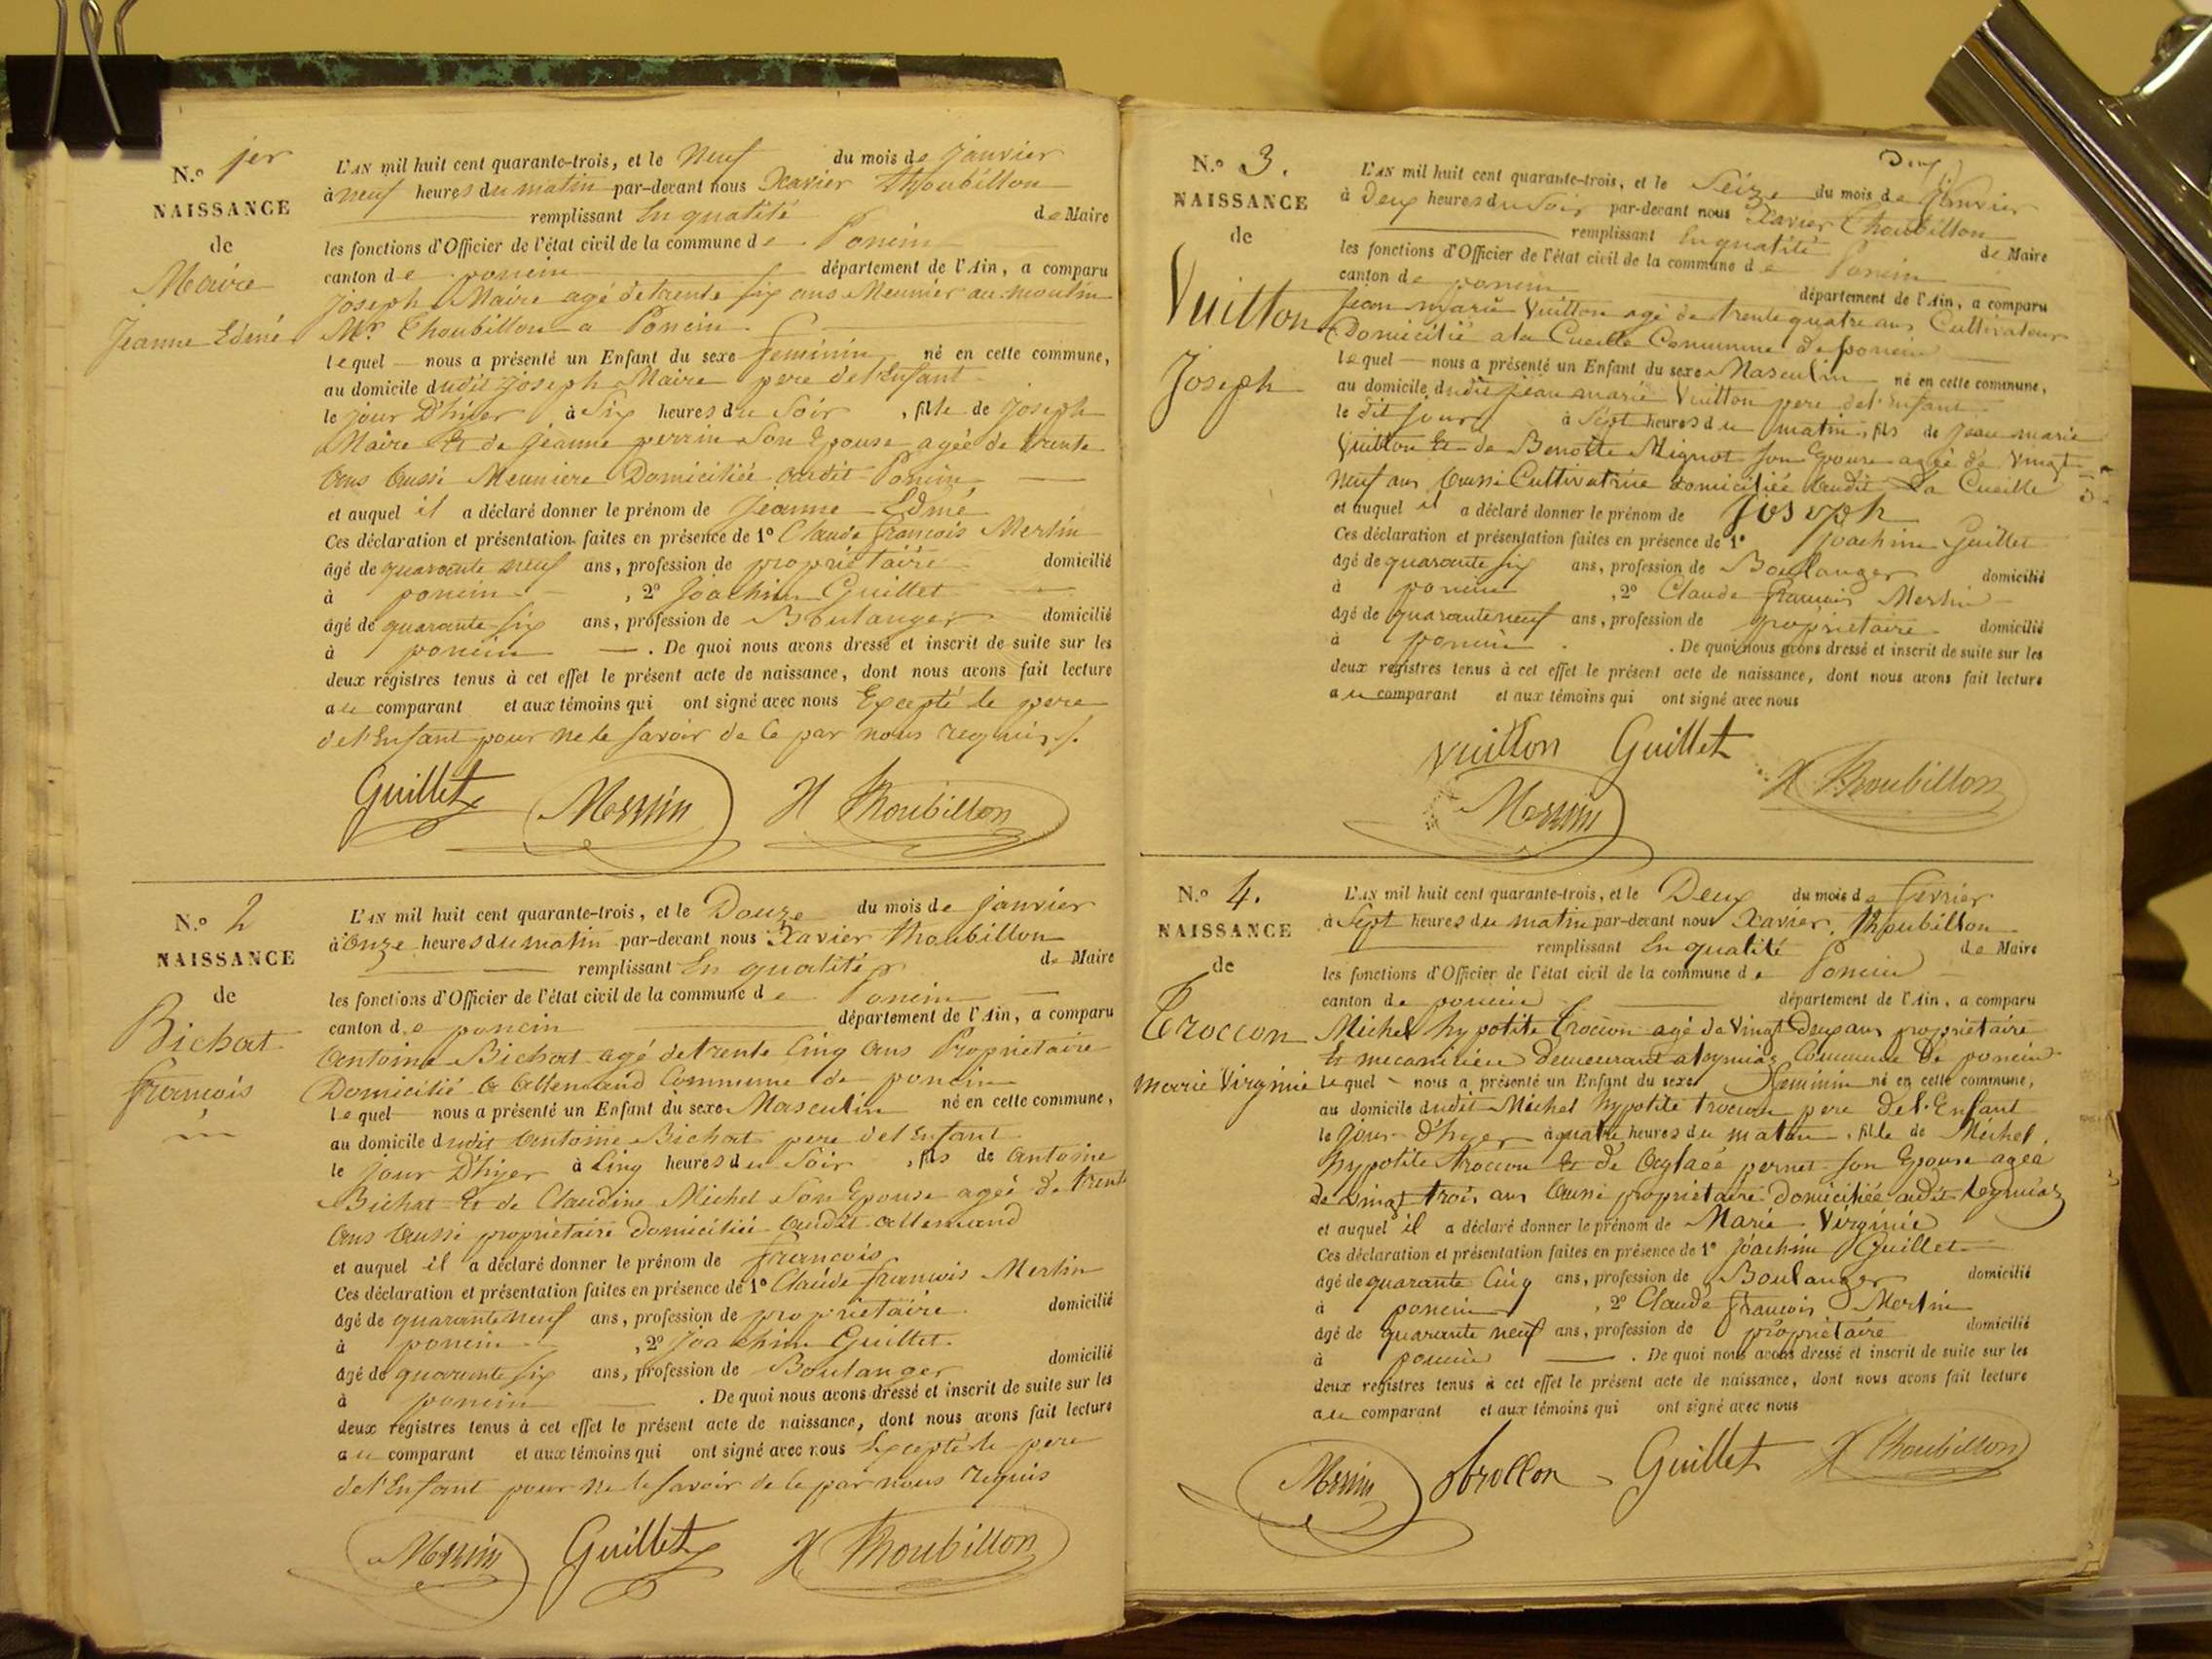 N.º 1er
NAISSANCE
de
Maire
Jeanne Edmé
L'AN mil huit cent quarante-trois, et le Neuf du mois de janvier
à neuf heures du matin par-devant nous Xavier Thoubillon
remplissant En qualité de Maire
les fonctions d'Officier de l'état civil de la commune de Poncin
canton de poncin département de l'Ain, a comparu
Joseph Maire agé de trente six ans Meunier au moulin
Mr. Thoubillon a Poncin
lequel nous a présenté un Enfant du sexe feminin né en cette commune,
au domicile dudit Joseph Maire pere de l'Enfant
le jour D'hyer à Six heures du Soir, fille de Joseph
Maire Et de Jeanne perrin Son Epouse agée de trente
Ans Aussi Meuniere Domiciliée audit Poncin
et auquel il a déclaré donner le prénom de Jeanne Edmé
Ces déclaration et présentation faites en présence de 1º Claude françois Merlin
âgé de quarante neuf ans, profession de propriétaire domicilié
à poncin, 2º Joachim Guillet
âgé de quarante six ans, profession de Boulanger domicilié
à poncin. De quoi nous avons dressé et inscrit de suite sur les
deux registres tenus à cet effet le présent acte de naissance, dont nous avons fait lecture
au comparant et aux témoins qui ont signé avec nous Excepté le pere
de l'Enfant pour ne le savoir de ce par nous requis
Guillet Merlin X Thoubillon
N.º 2
NAISSANCE
de
Bichat
françois
L'AN mil huit cent quarante-trois, et le Douze du mois de janvier
à Onze heures du matin par-devant nous Xavier Thoubillon
remplissant En qualité de Maire
les fonctions d'Officier de l'état civil de la commune de Poncin
canton de poncin département de l'Ain, a comparu
Antoine Bichat agé de trente Cinq Ans Propriétaire
Domicilié A Allemand Commune de poncin
lequel nous a présenté un Enfant du sexe Masculin né en cette commune,
au domicile dudit Antoine Bichat pere de l'Enfant
le jour D'hyer à Cinq heures du Soir, fils de Antoine
Bichat Et de Claudine Michel Son Epouse agée de trente
Ans Aussi propriétaire domiciliée Audit Allemand
et auquel il a déclaré donner le prénom de françois
Ces déclaration et présentation faites en présence de 1º Claude françois Merlin
âgé de quarante neuf ans, profession de propriétaire domicilié
à poncin, 2º Joachim Guillet
âgé de quarante six ans, profession de Boulanger domicilié
à poncin. De quoi nous avons dressé et inscrit de suite sur les
deux registres tenus à cet effet le présent acte de naissance, dont nous avons fait lecture
au comparant et aux témoins qui ont signé avec nous Excepté le pere
de l'Enfant pour ne le savoir de ce par nous requis
Merlin Guillet X Thoubillon
N.º 3.
NAISSANCE
de
Vuitton
Joseph
L'AN mil huit cent quarante-trois, et le Seize du mois de Janvier
à Deux heures du Soir par-devant nous Xavier Thoubillon
remplissant En qualité de Maire
les fonctions d'Officier de l'état civil de la commune de Poncin
canton de poncin département de l'Ain, a comparu
Jean marie Vuitton agé de trente quatre ans Cultivateur
Domicilié a la Cueille Commune de poncin
lequel nous a présenté un Enfant du sexe Masculin né en cette commune,
au domicile dudit jean marie Vuitton pere de l'Enfant
le dit jour à Sept heures du matin, fils de Jean marie
Vuitton Et de Benoite Mignot Son Epouse agée de Vingt
Neuf ans Aussi Cultivatrice domiciliée Audit La Cueille
et auquel il a déclaré donner le prénom de Joseph
Ces déclaration et présentation faites en présence de 1º Joachim Guillet
âgé de quarante six ans, profession de Boulanger domicilié
à poncin, 2º Claude françois Merlin
âgé de quarante neuf ans, profession de propriétaire domicilié
à poncin. De quoi nous avons dressé et inscrit de suite sur les
deux registres tenus à cet effet le présent acte de naissance, dont nous avons fait lecture
au comparant et aux témoins qui ont signé avec nous
Vuitton Guillet
Merlin X Thoubillon
N.º 4.
NAISSANCE
de
Troccon
Marie Virginie
L'AN mil huit cent quarante-trois, et le Deux du mois de fevrier
à Sept heures du matin par-devant nous Xavier Thoubillon
remplissant En qualité de Maire
les fonctions d'Officier de l'état civil de la commune de Poncin
canton de poncin département de l'Ain, a comparu
Michel hypolite Troccon agé de Vingt Deux ans propriétaire
Et mecanicien demeurant a Leymiaz Commune De poncin
lequel nous a présenté un Enfant du sexe Feminin né en cette commune,
au domicile dudit Michel hypolite troccon pere De l'Enfant
le jour D'hyer à quatre heures du matin, fille de Michel
hypolite troccon Et de Aglaée pernet Son Epouse agée
de Vingt trois ans Aussi propriétaire Domiciliée audit Leymiaz
et auquel il a déclaré donner le prénom de Marie Virginie
Ces déclaration et présentation faites en présence de 1º Joachim Guillet
âgé de quarante Cinq ans, profession de Boulanger domicilié
à poncin, 2º Claude françois Merlin
âgé de quarante neuf ans, profession de propriétaire domicilié
à poncin. De quoi nous avons dressé et inscrit de suite sur les
deux registres tenus à cet effet le présent acte de naissance, dont nous avons fait lecture
au comparant et aux témoins qui ont signé avec nous
Merlin Guillet X Thoubillon